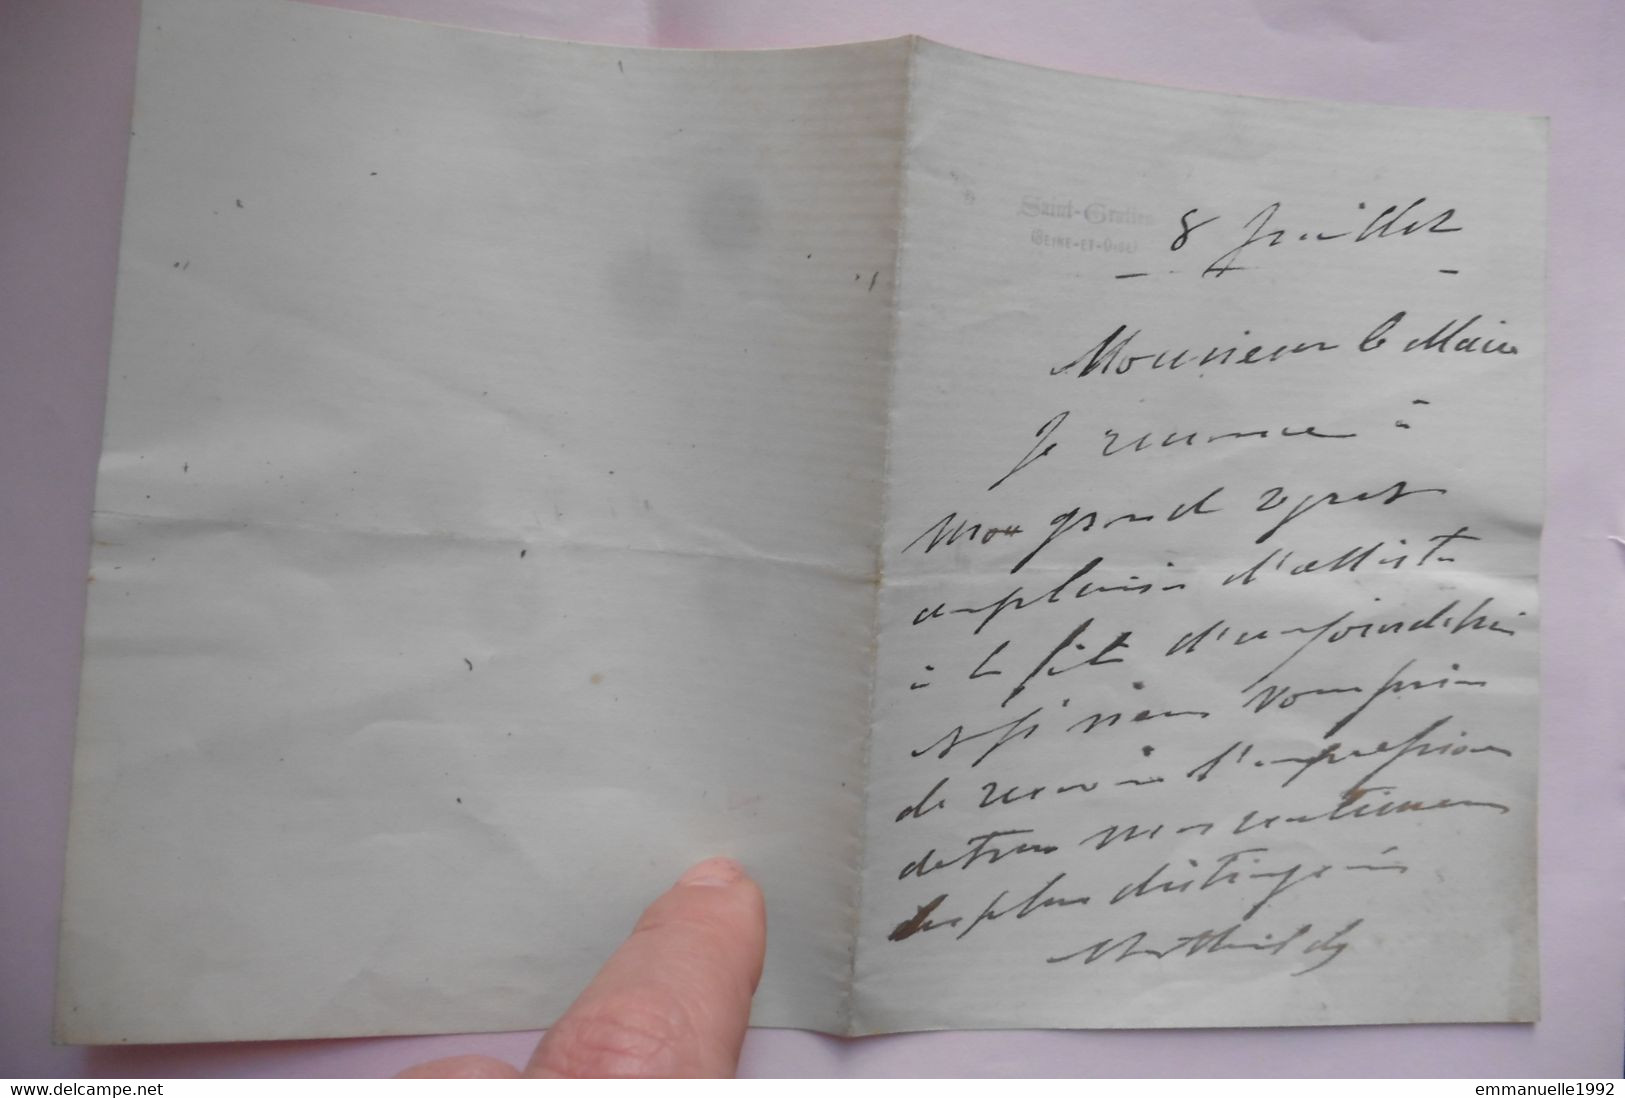 Saint-Gratien
(SEINE-ET-OISE)
8 Juillet
Monsieur le Maire
Je renonce à
mon grand regret
au plaisir d'assister
à la fête d'aujourd'hui
et je viens vous prier
de recevoir l'expression
de tous mes sentimens
les plus distingués
Mathilde
delcampe.net
emmanuelle1992